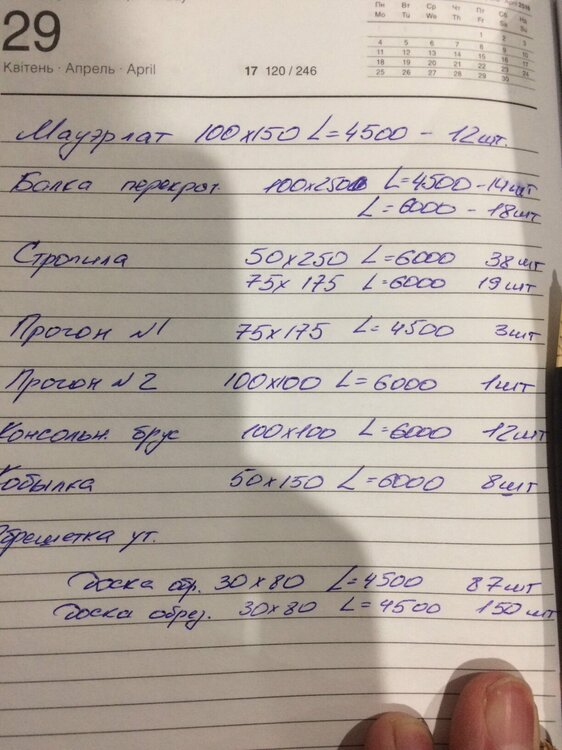 29
Квітень · Апрель · April
17 120 / 246
Пн Вт Ср Чт Пт Сб Нд
Mo Tu We Th Fr Sa Su
1 2 3
4 5 6 7 8 9 10
11 12 13 14 15 16 17
18 19 20 21 22 23 24
25 26 27 28 29 30
Мауэрлат 100х150 L=4500 - 12шт.
Балка перекрыт. 100х250 L=4500 - 14шт
L=6000 - 18шт
Стропила 50х250 L=6000 38шт
75х175 L=6000 19шт
Прогон №1 75х175 L=4500 3шт
Прогон №2 100х100 L=6000 1шт
Консольн. брус 100х100 L=6000 12шт
Кобылка 50х150 L=6000 8шт
Обрешетка ут.
Доска обр. 30х80 L=4500 87шт
Доска обрез. 30х80 L=4500 150шт